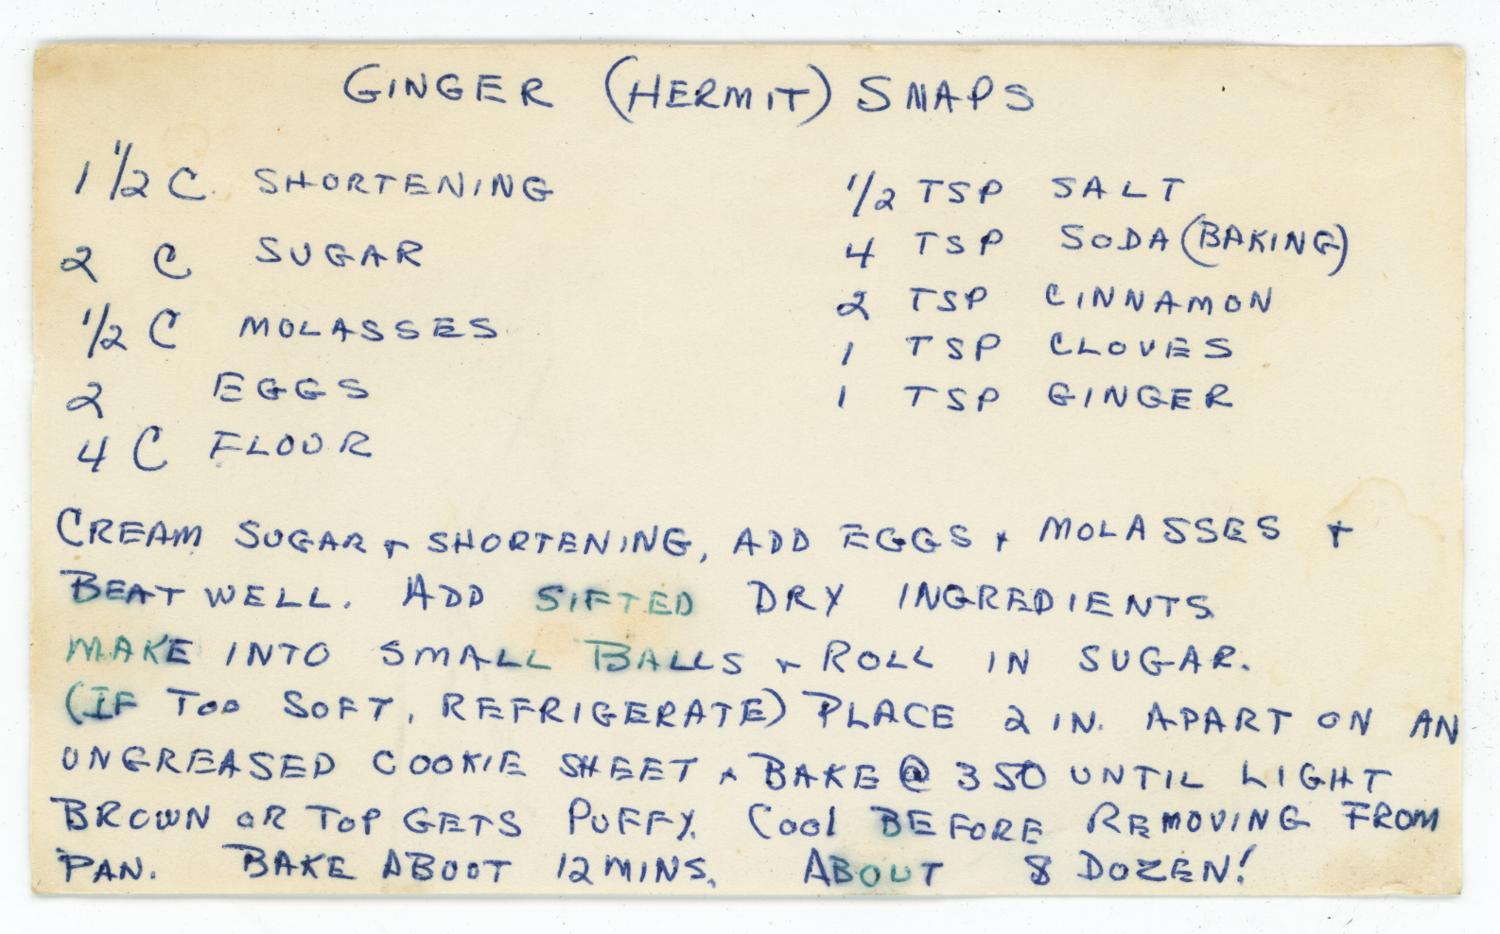 GINGER (HERMIT) SNAPS
1 1/2 C SHORTENING
2 C SUGAR
1/2 C MOLASSES
2 EGGS
4 C FLOUR
1/2 TSP SALT
4 TSP SODA (BAKING)
2 TSP CINNAMON
1 TSP CLOVES
1 TSP GINGER
CREAM SUGAR + SHORTENING, ADD EGGS + MOLASSES +
BEAT WELL. ADD SIFTED DRY INGREDIENTS
MAKE INTO SMALL BALLS + ROLL IN SUGAR.
(IF TOO SOFT, REFRIGERATE) PLACE 2 IN. APART ON AN
UNGREASED COOKIE SHEET + BAKE @ 350 UNTIL LIGHT
BROWN OR TOP GETS PUFFY. COOL BEFORE REMOVING FROM
PAN. BAKE ABOUT 12 MINS. ABOUT 8 DOZEN!